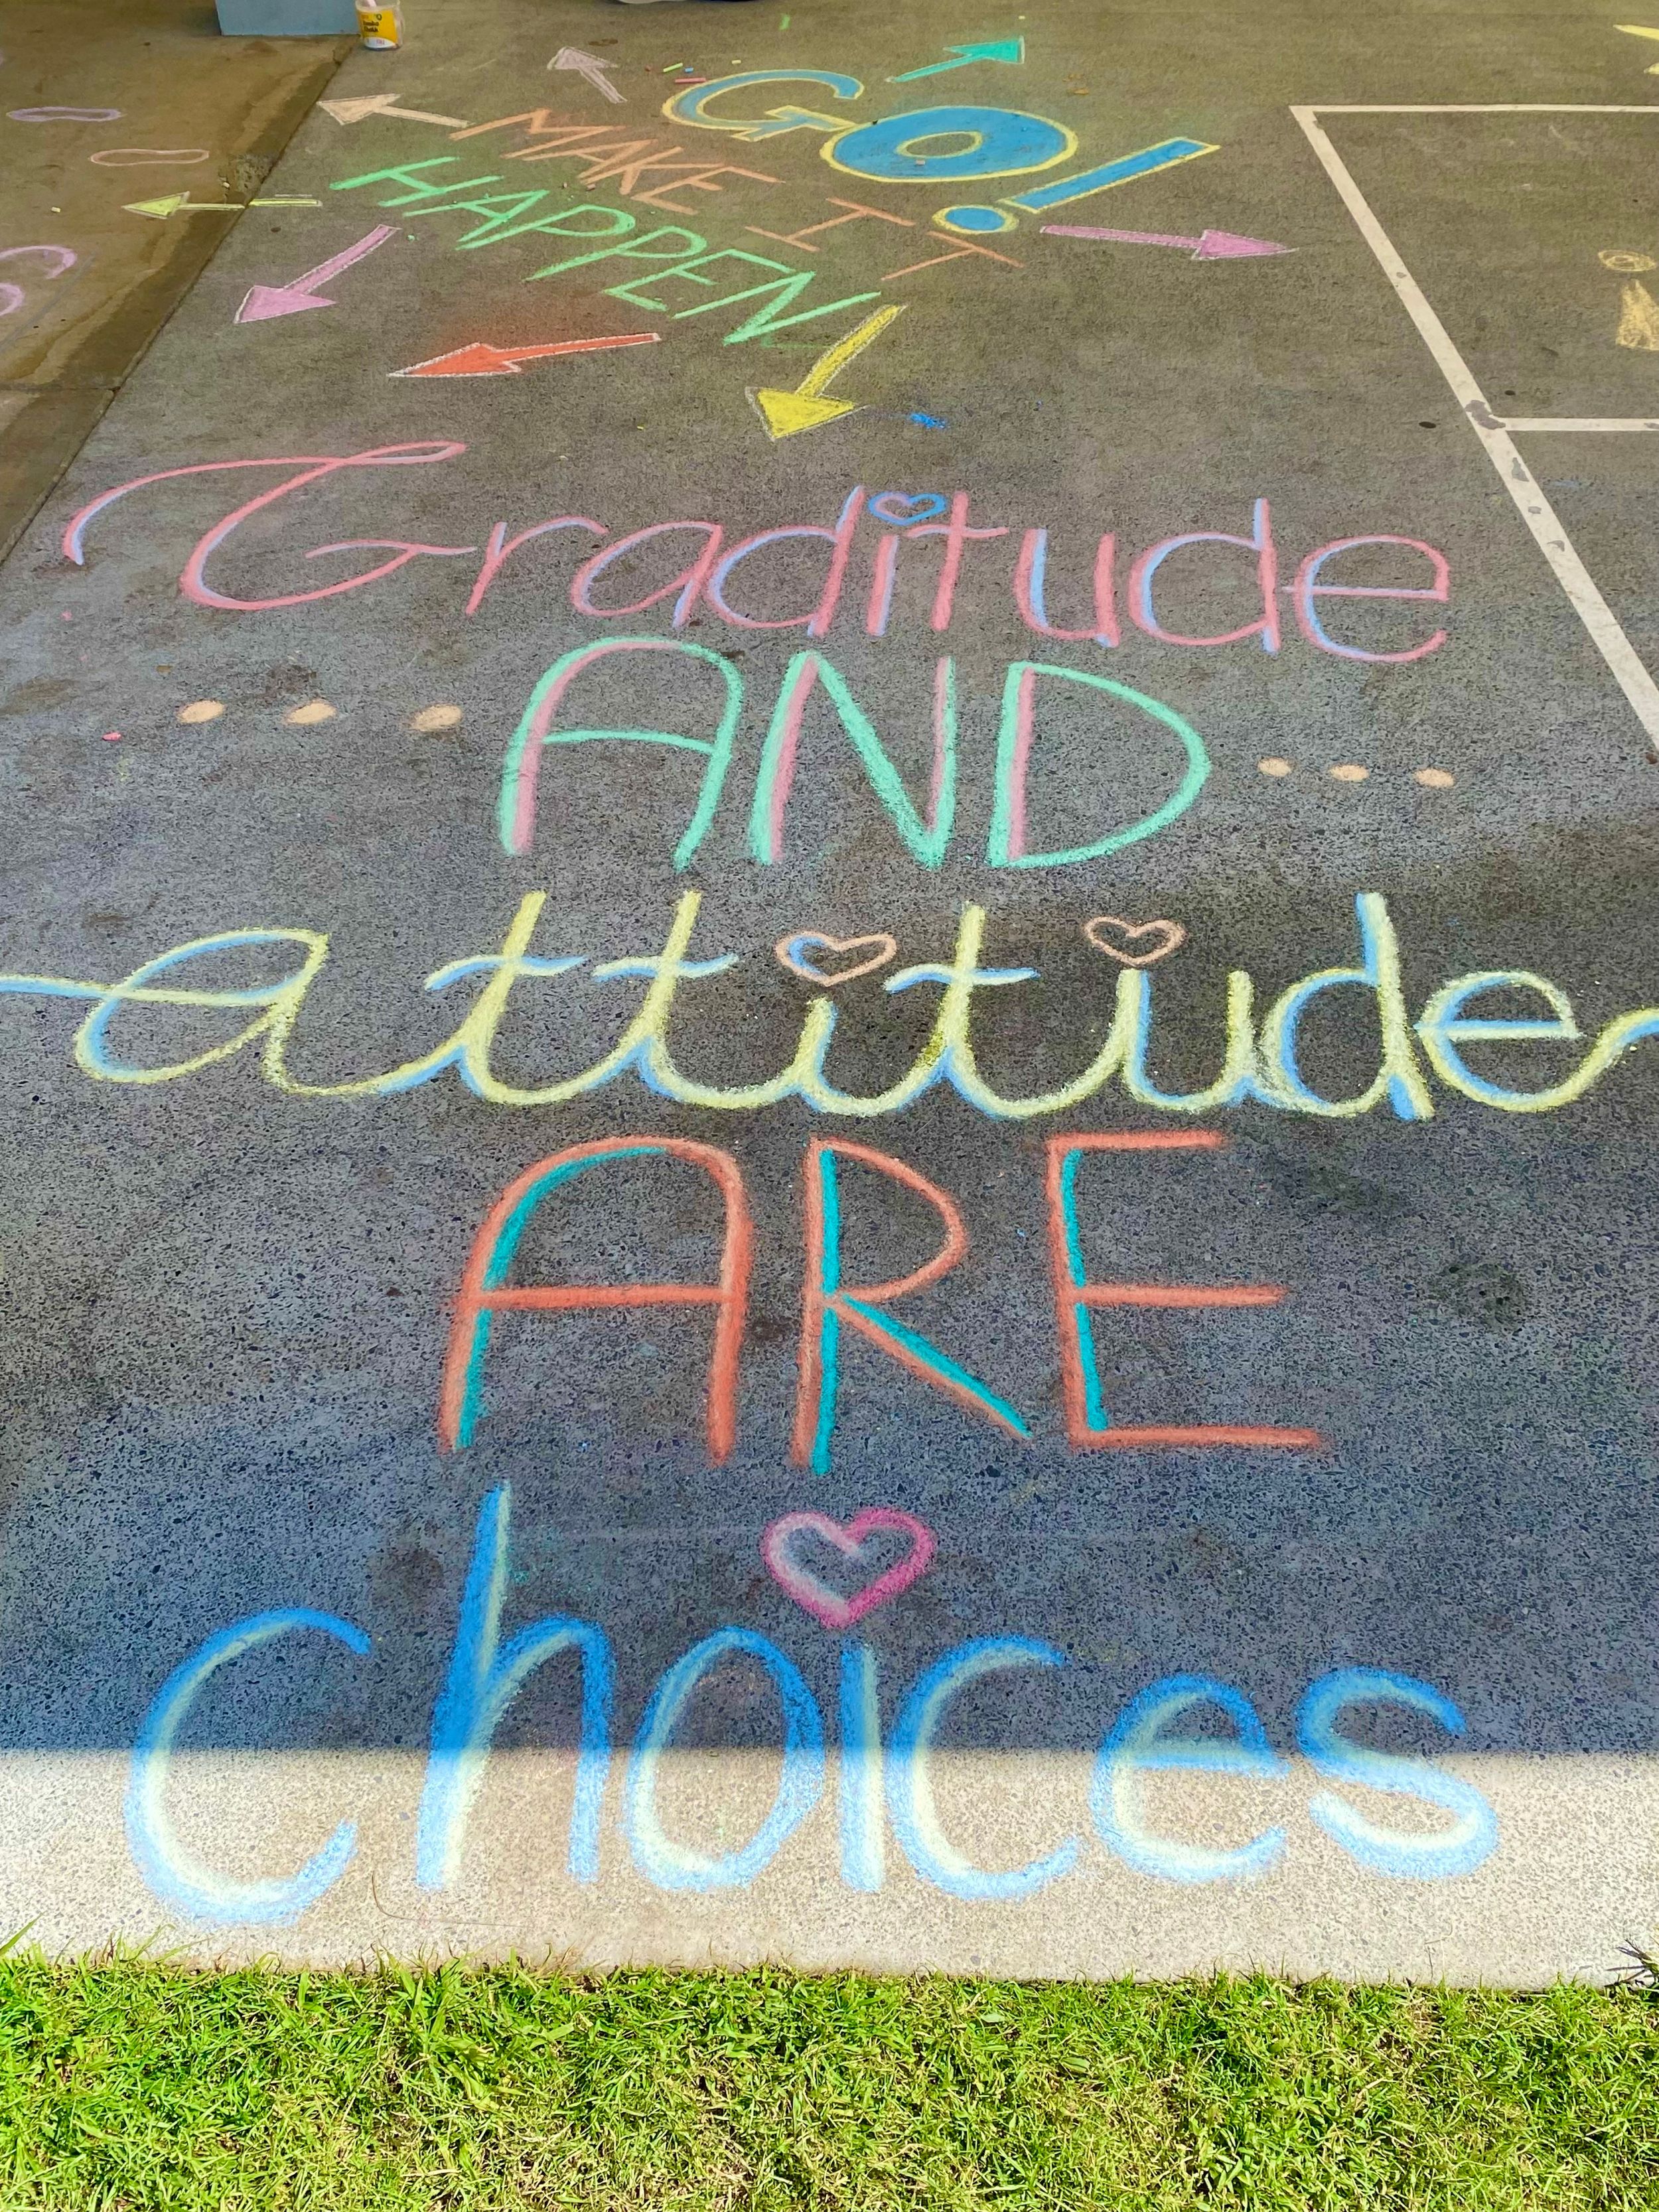 GO!
MAKE IT
HAPPEN
Gratitude
AND
attitude
ARE
choices